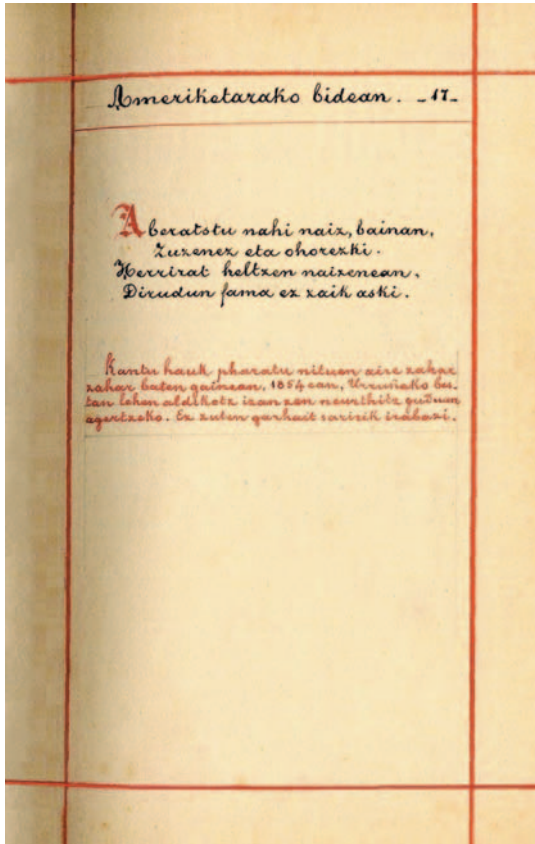 Ameriketarako bidean. _17_
Aberatstu nahi naiz, bainan,
Zuzenez eta ohorezki.
Herrirat heltzen naizenean,
Dirudun fama ez zaik aski.
Kantu hauk pharatu nituen aire zahar
zahar baten gainean, 1854 ean, Urruñako bes-
tan lehen aldikotz izan zen neurthitz guduan
agertzeko. Ez zuten garhait saririk irabazi.